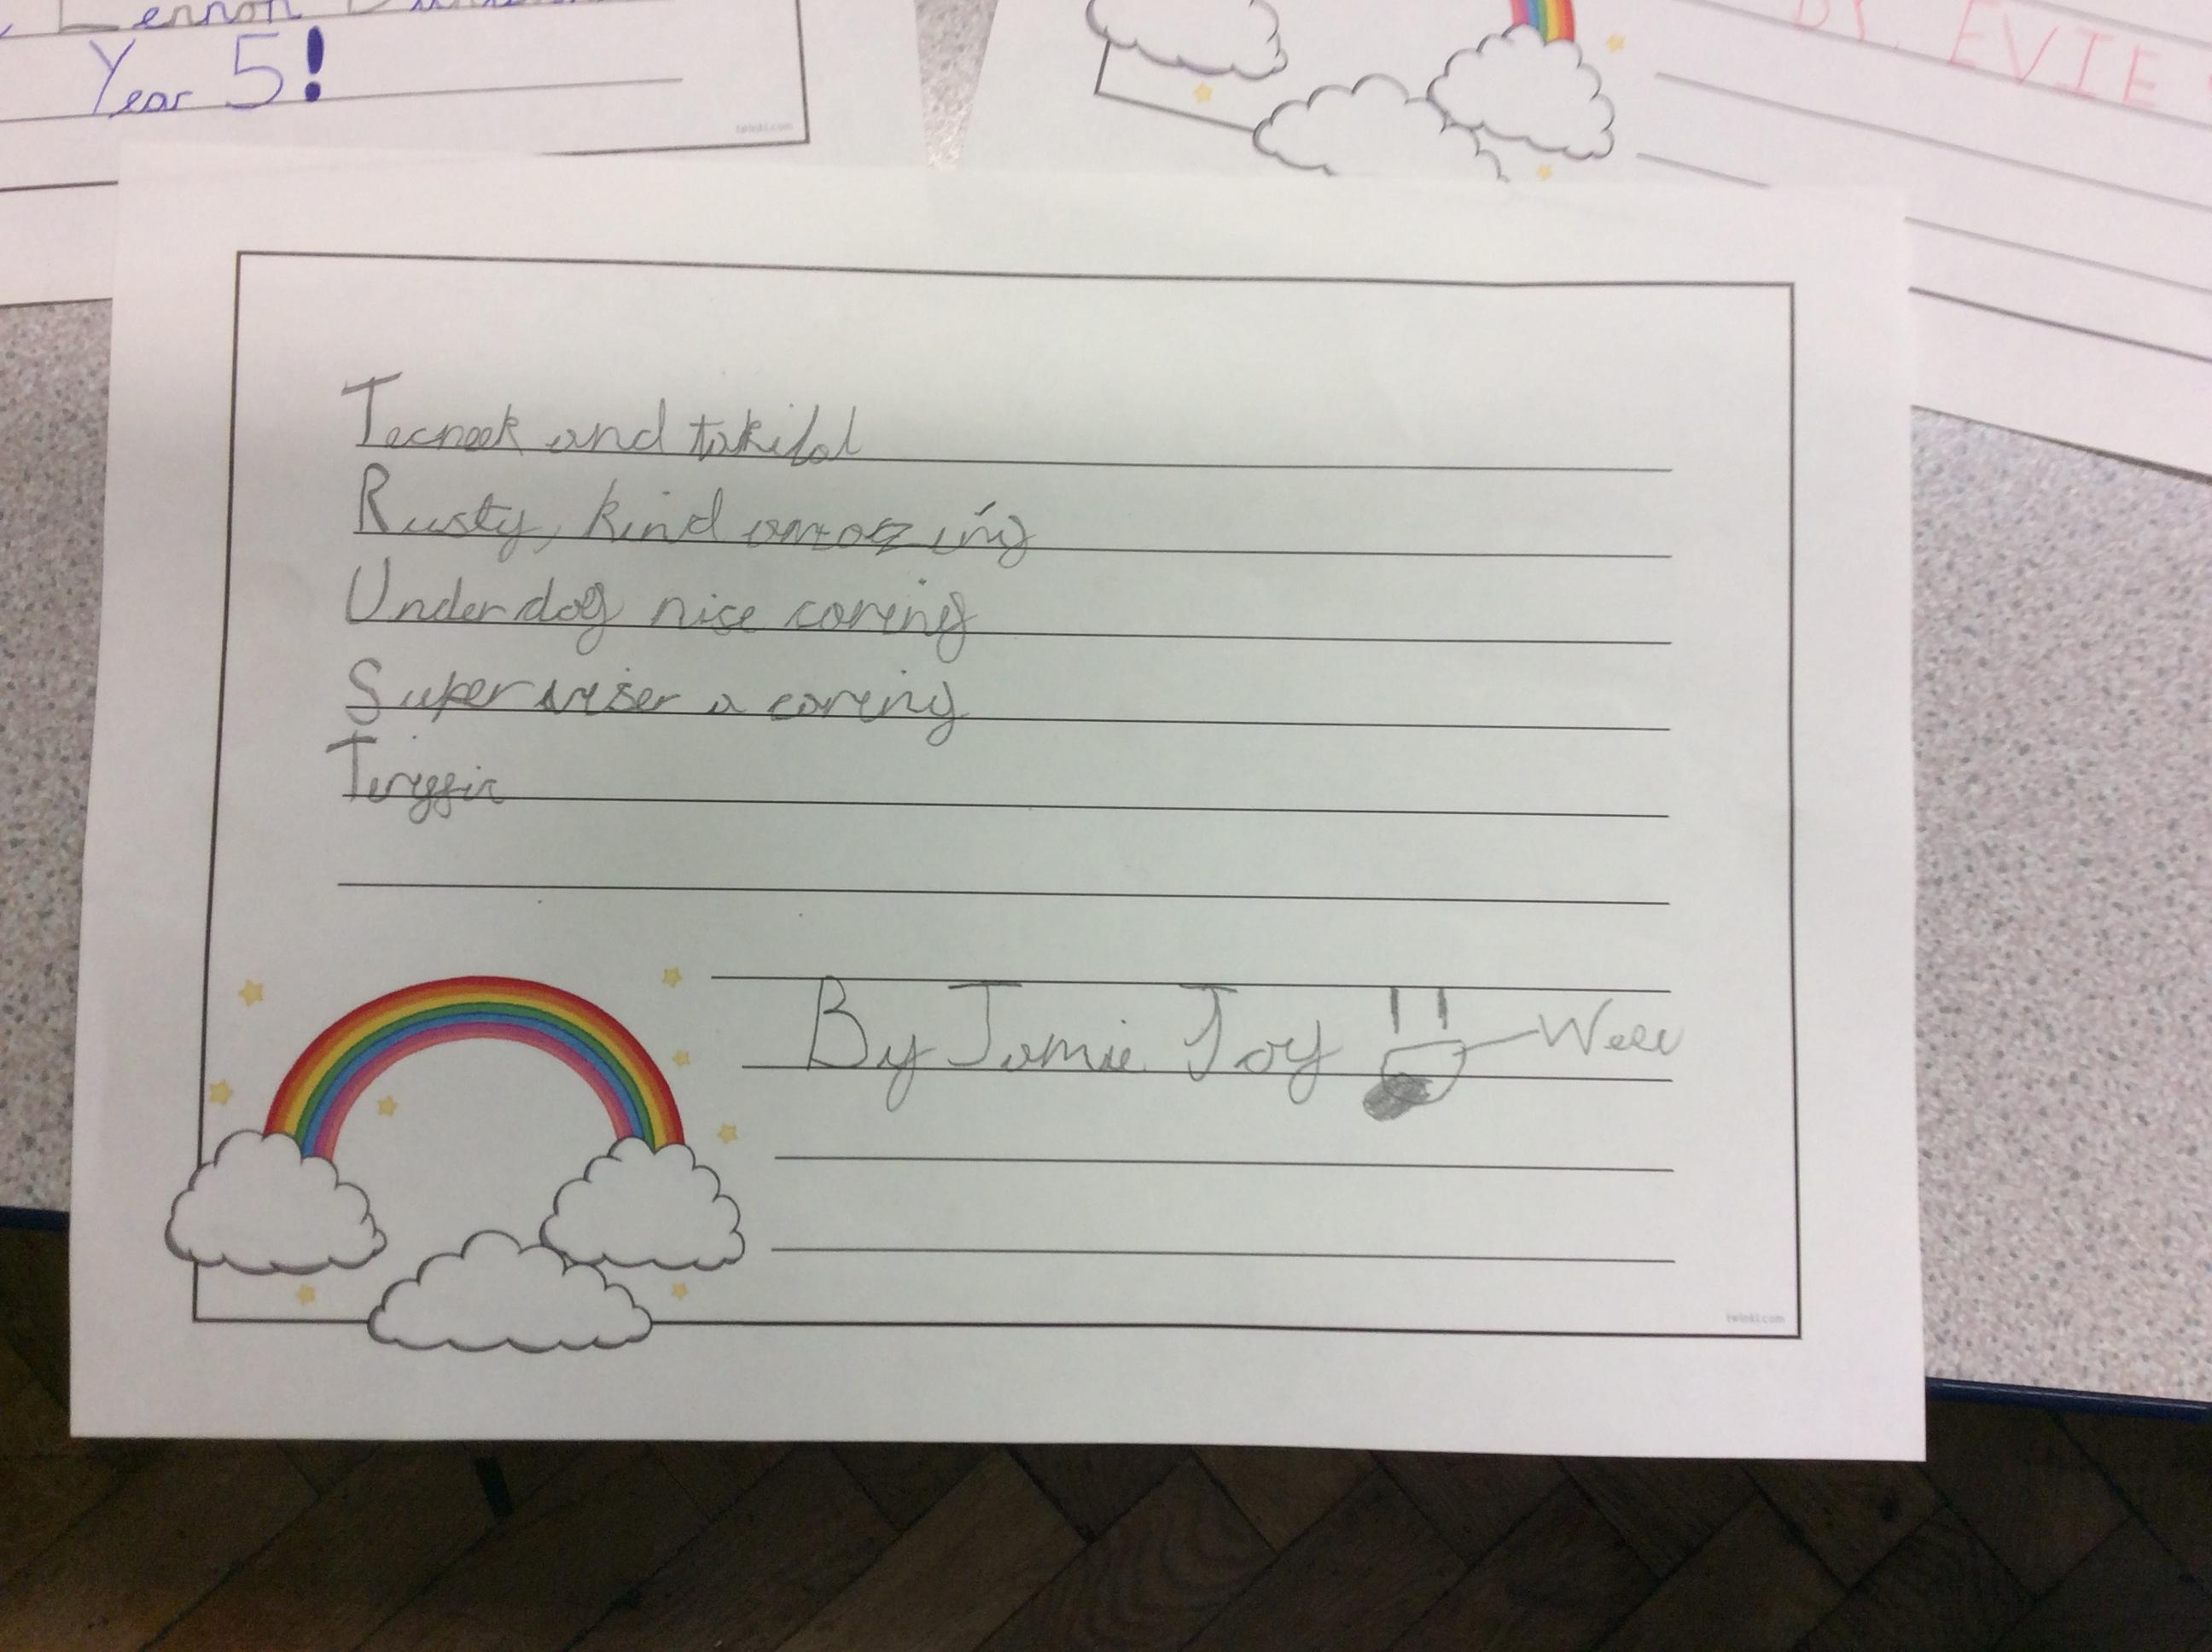 Lennon
Year 5!
twinkl.com
By EVIE
Tecneek and takifol
Rusty, kind amazing
Underdog nice careing
Superviser a careing
By Jamie Joy Weee
twinkl.com